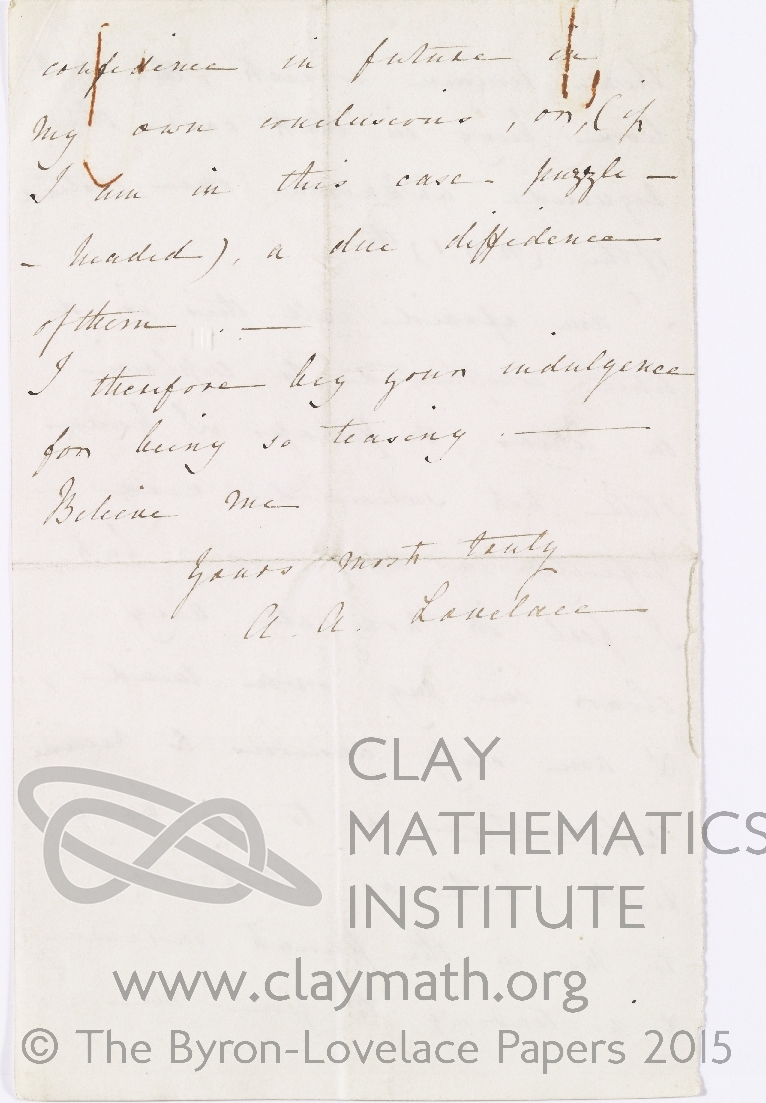 confidence in future in
my own conclusions, or, (if
I am in this case puzzle-
-headed), a due diffidence
of them. —
I therefore beg your indulgence
for being so teasing. —
Believe me
Yours most truly
A. A. Lovelace
CLAY
MATHEMATICS
INSTITUTE
www.claymath.org
© The Byron-Lovelace Papers 2015